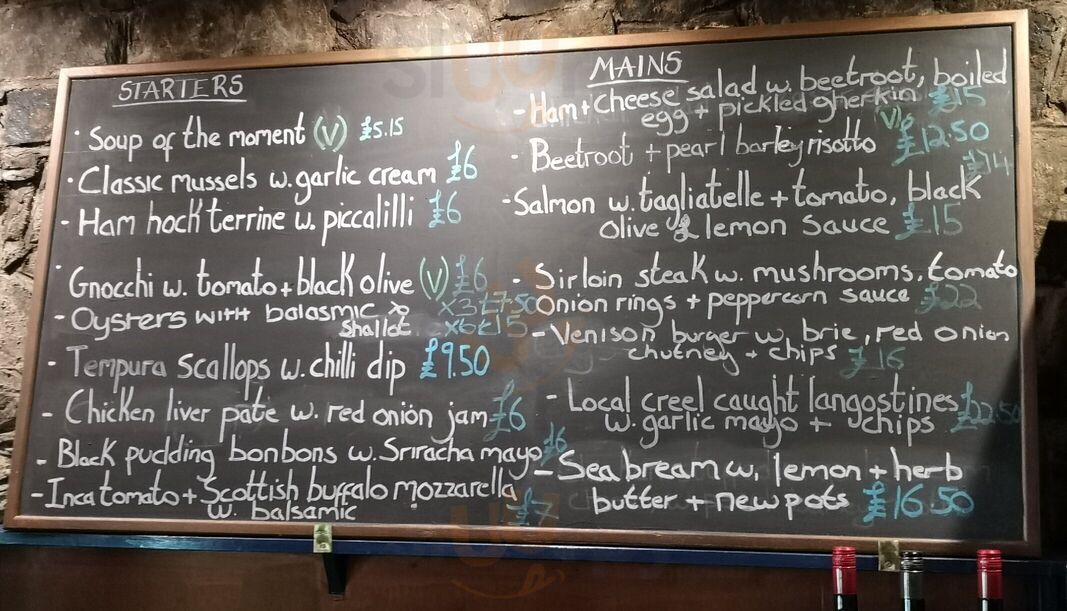 STARTERS
· Soup of the moment (V) £5.15
· Classic mussels w. garlic cream £6
- Ham hock terrine w. piccalilli £6
· Gnocchi w. tomato + black olive (V) £6
- Oysters with balasmic & x3 £7.50
shallot x6 £15
- Tempura scallops w. chilli dip £9.50
- Chicken liver pate w. red onion jam £6
- Black pudding bonbons w. Sriracha mayo £6
- Inca tomato + Scottish buffalo mozzarella
w. balsamic £7
MAINS
- Ham + cheese salad w. beetroot, boiled
egg + pickled gherkin £15
- Beetroot + pearl barley risotto (V) £12.50
£14
- Salmon w. tagliatelle + tomato, black
olive & lemon sauce £15
- Sirloin steak w. mushrooms, tomato
onion rings + peppercorn sauce £22
- Venison burger w. brie, red onion
chutney + chips £16
- Local creel caught langostines £22.50
w. garlic mayo + chips
- Sea bream w. lemon + herb
butter + new pots £16.50